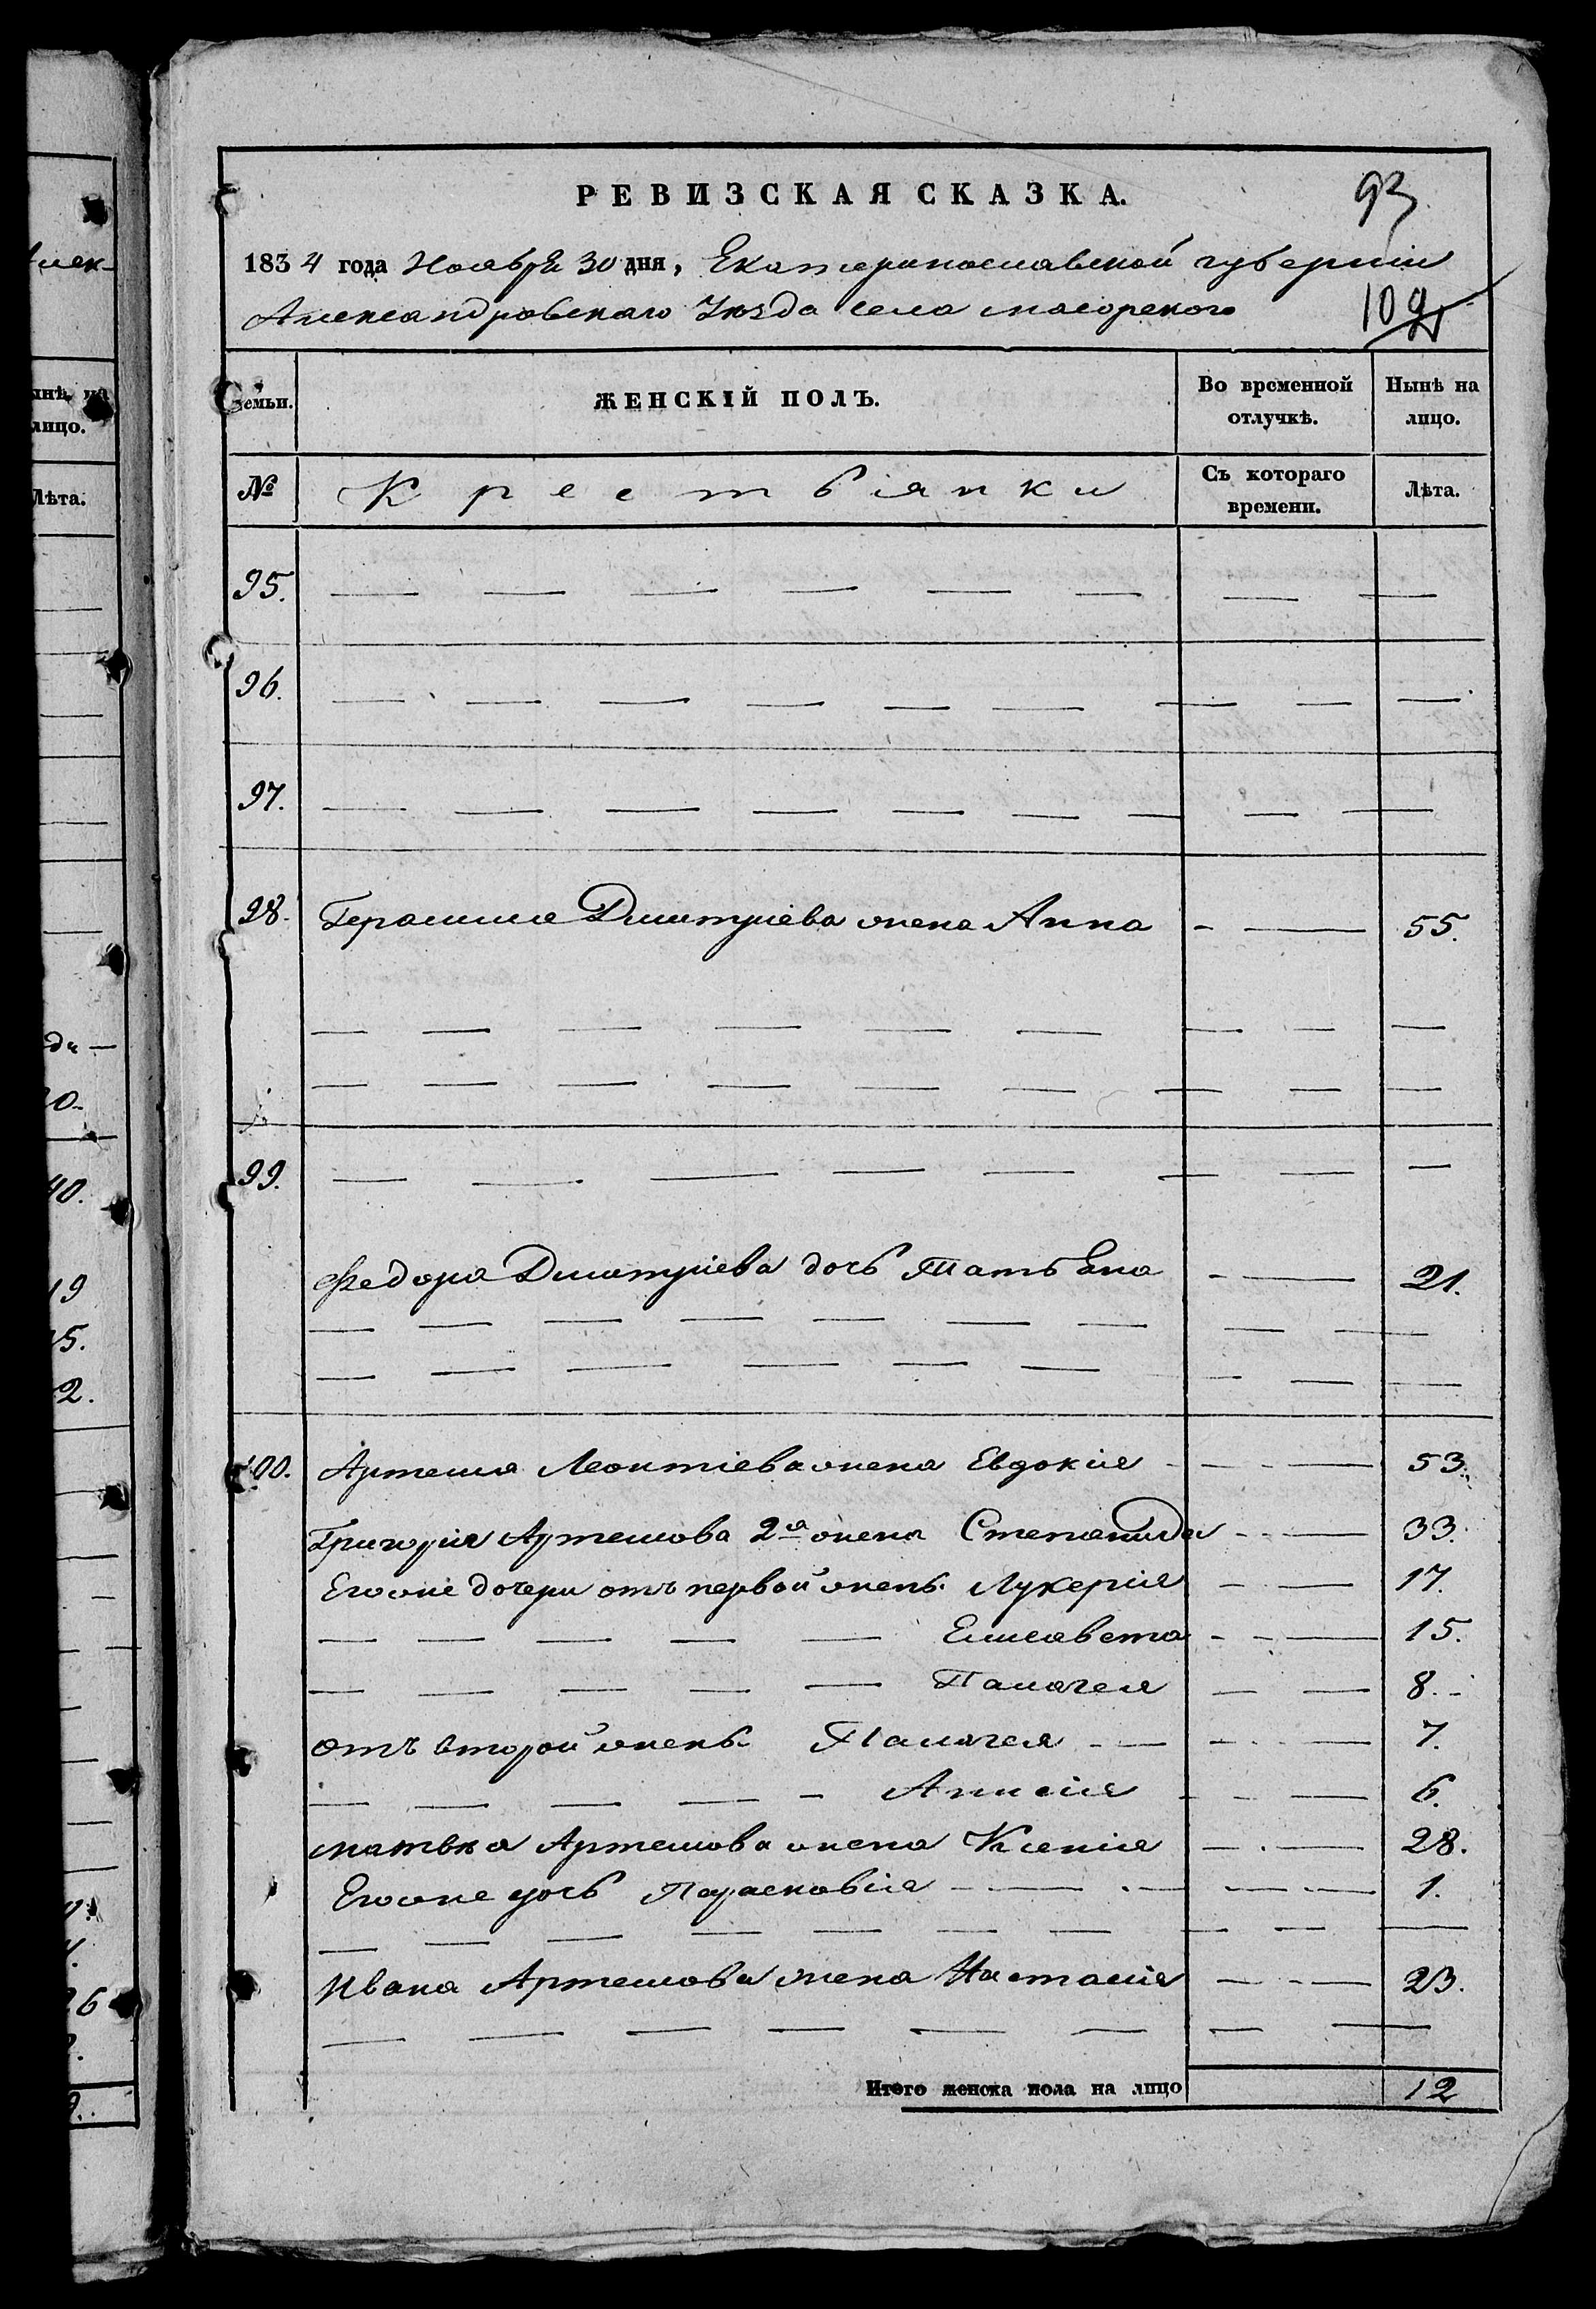 РЕВИЗСКАЯ СКАЗКА.
93
1834 года Ноября 30 дня, Екатеринославской губерніи
Александровскаго Уезда села маіорского
109
Семьи.
ЖЕНСКІЙ ПОЛЪ.
Во временной отлучкѣ.
Нынѣ на лицо.
№
Крестьянки
Съ котораго времени.
Лѣта.
95.
96.
97.
98. Герасима Дмитріева жена Анна 55.
99.
Федора Дмитріева дочь Татьяна 21.
100. Артема Леонтіева жена Евдокія 53.
Григорія Артемова 2я жена Степанида 33.
Его же дочери отъ первой жены Лукерія 17.
Елисавета 15.
Палагея 8.
отъ второй жены Палагея 7.
Анисія 6.
матвѣя Артемова жена Ксенія 28.
Его же дочь Парасковія 1.
Ивана Артемова жена Настасія 23.
Итого женска пола на лицо 12
нынѣ на
лицо.
Лѣта.
40.
19